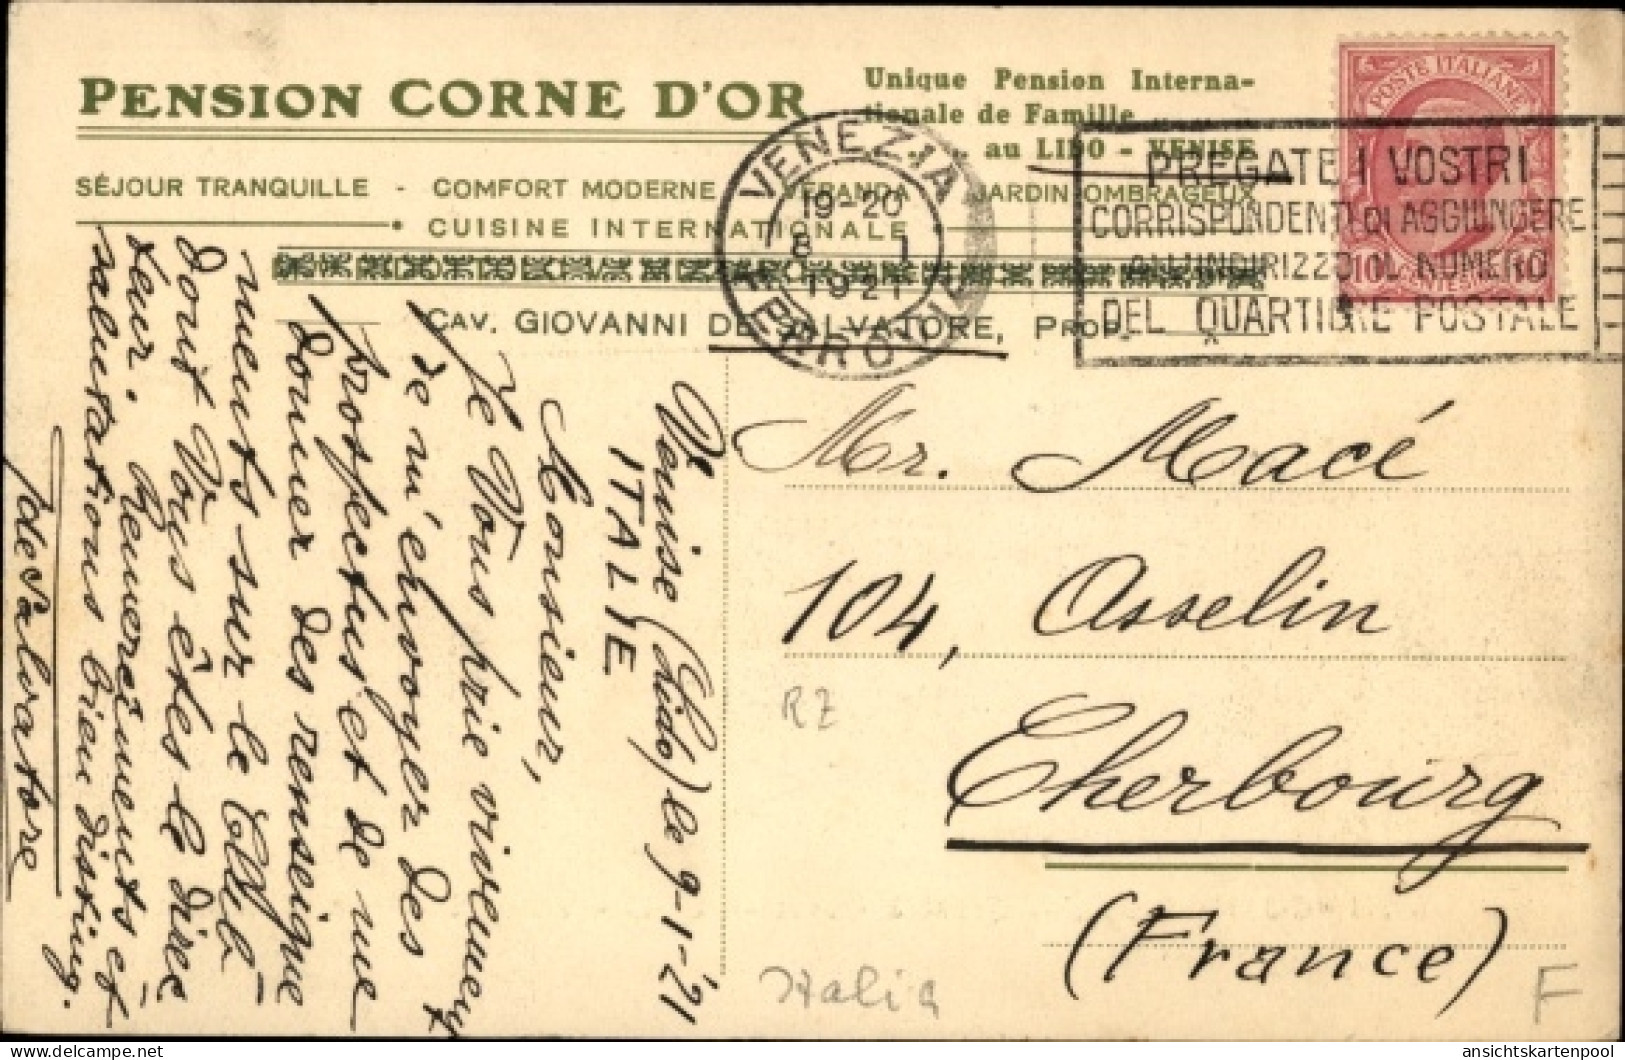 PENSION CORNE D'OR
Unique Pension Interna-
tionale de Famille
au LIDO - VENISE
SÉJOUR TRANQUILLE - COMFORT MODERNE - VERANDA - JARDIN OMBRAGEUX
• CUISINE INTERNATIONALE
CAV. GIOVANNI DE SALVATORE, PROP.
POSTE ITALIANE
10 CENTESIMI
VENEZIA
19-20
8 1
1921
FERROVIA
PREGATE I VOSTRI
CORRISPONDENTI DI AGGIUNGERE
ALL'INDIRIZZO IL NUMERO
DEL QUARTIERE POSTALE
Venise (Lido) le 9-1-'21
ITALIE
Monsieur,
Je Vous prie vivement
de m'envoyer des
prospectus et de me
donner des renseigne
ments sur le Club
dont Vous êtes le direc
teur. Remercîments et
salutations bien disting.
de Salvatore
Mr. Macé
104, Asselin
Cherbourg
(France)
RZ
Italia
F
© oldthing.com
ansichtskartenpool